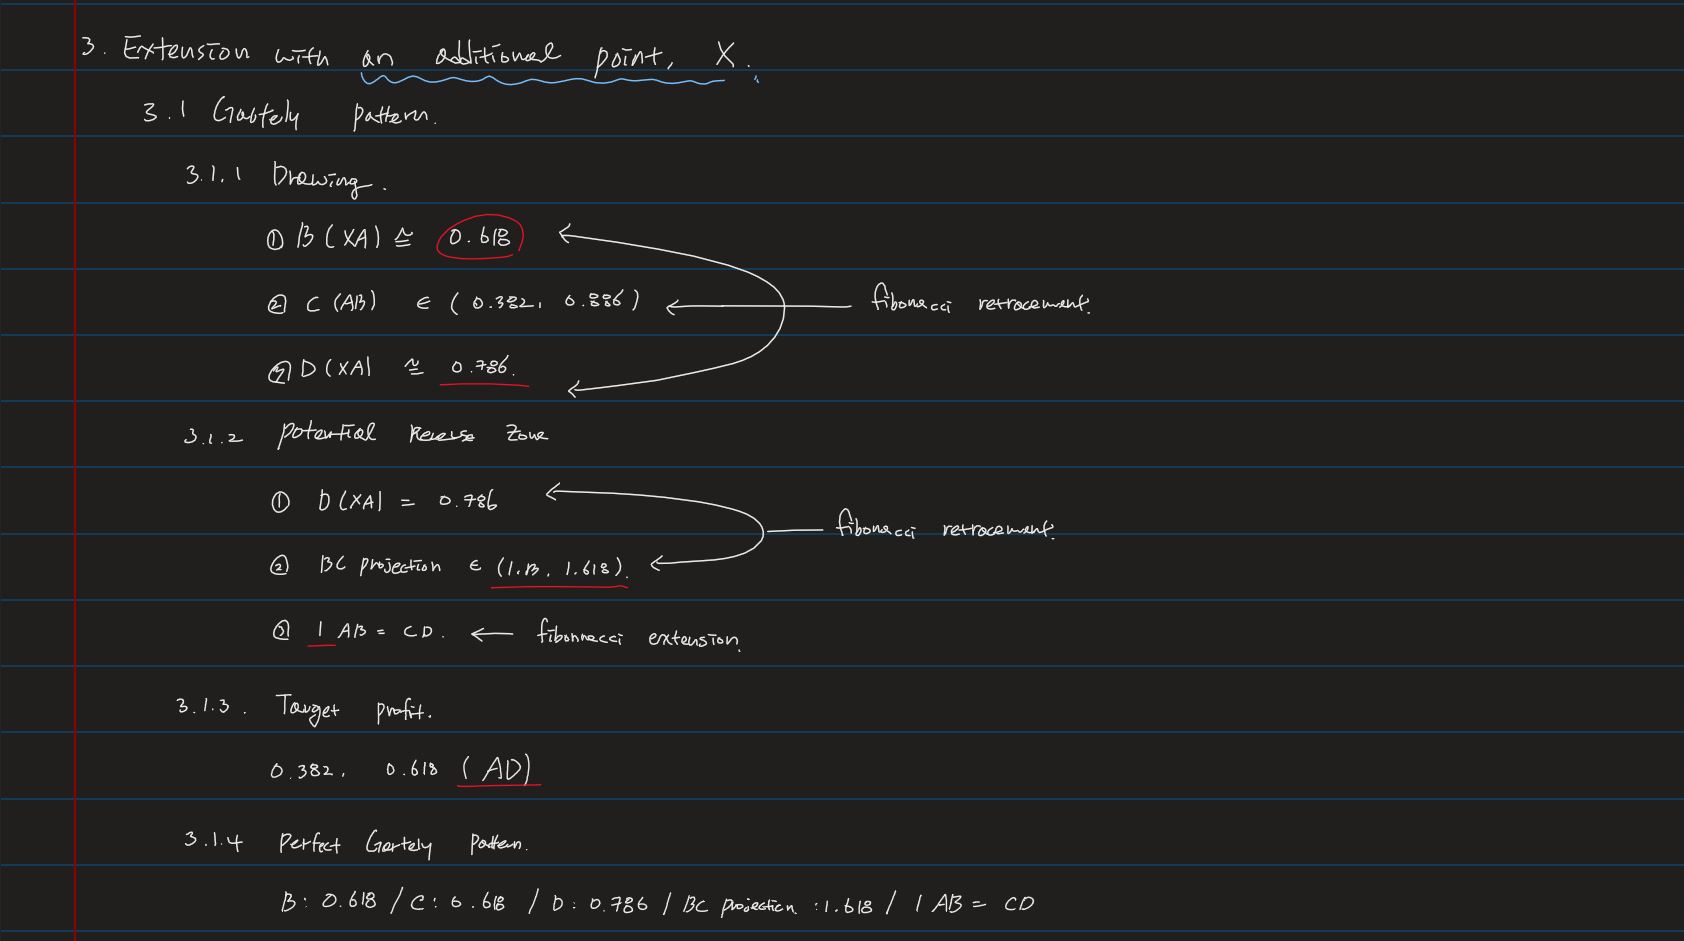 3. Extension with an additional point, X.
3.1 Gartely pattern.
3.1.1 Drawing.
① B (XA) ≅ 0.618
② C (AB) ∈ (0.382, 0.886) ← fibonacci retracement.
③ D (XA) ≅ 0.786.
3.1.2 potential Reverse Zone
① D (XA) = 0.786
fibonacci retracement.
② BC projection ∈ (1.13, 1.618).
③ 1 AB = CD. ← fibonnacci extension.
3.1.3. Target profit.
0.382, 0.618 (AD)
3.1.4 Perfect Gartely pattern.
B: 0.618 / C: 0.618 / D: 0.786 / BC projection :1.618 / 1 AB = CD